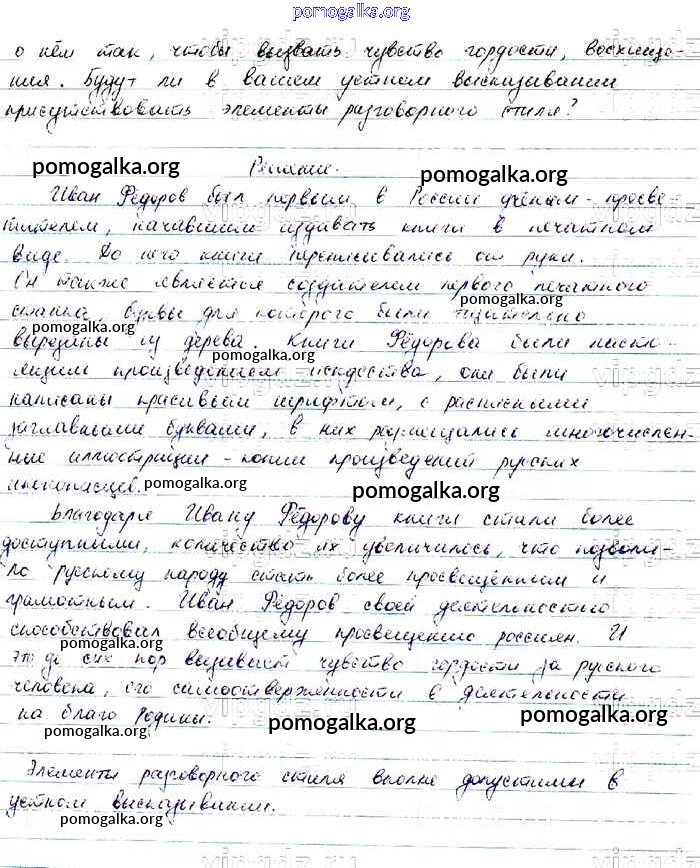 pomogalka.org
о нём так, чтобы вызвать чувство гордости, восхище-
ния. Будут ли в вашем устном высказывании
присутствовать элементы разговорного стиля?
pomogalka.org Решение. pomogalka.org
Иван Фёдоров был первым в России учёным-просве-
тителем, начавшим издавать книги в печатном
виде. До него книги переписывались от руки.
Он также является создателем первого печатного
pomogalka.org
станка, буквы для которого были тщательно
pomogalka.org
вырезаны из дерева. Книги Фёдорова были насто-
pomogalka.org
ящим произведением искусства, они были
написаны красивым шрифтом, с расписными
заглавными буквами, в них размещались многочислен-
ные иллюстрации - копии произведений русских
иконописцев. pomogalka.org pomogalka.org
Благодаря Ивану Фёдорову книги стали более
доступными, количество их увеличилось, что позволи-
ло русскому народу стать более просвещённым и
грамотным. Иван Фёдоров своей деятельностью
способствовал всеобщему просвещению россиян. И
это до сих пор вызывает чувство гордости за русского
человека, его самоотверженности в деятельности
на благо Родины. pomogalka.org pomogalka.org
pomogalka.org
Элементы разговорного стиля вполне допустимы в
устном высказывании.
pomogalka.org
vipgdz.ru